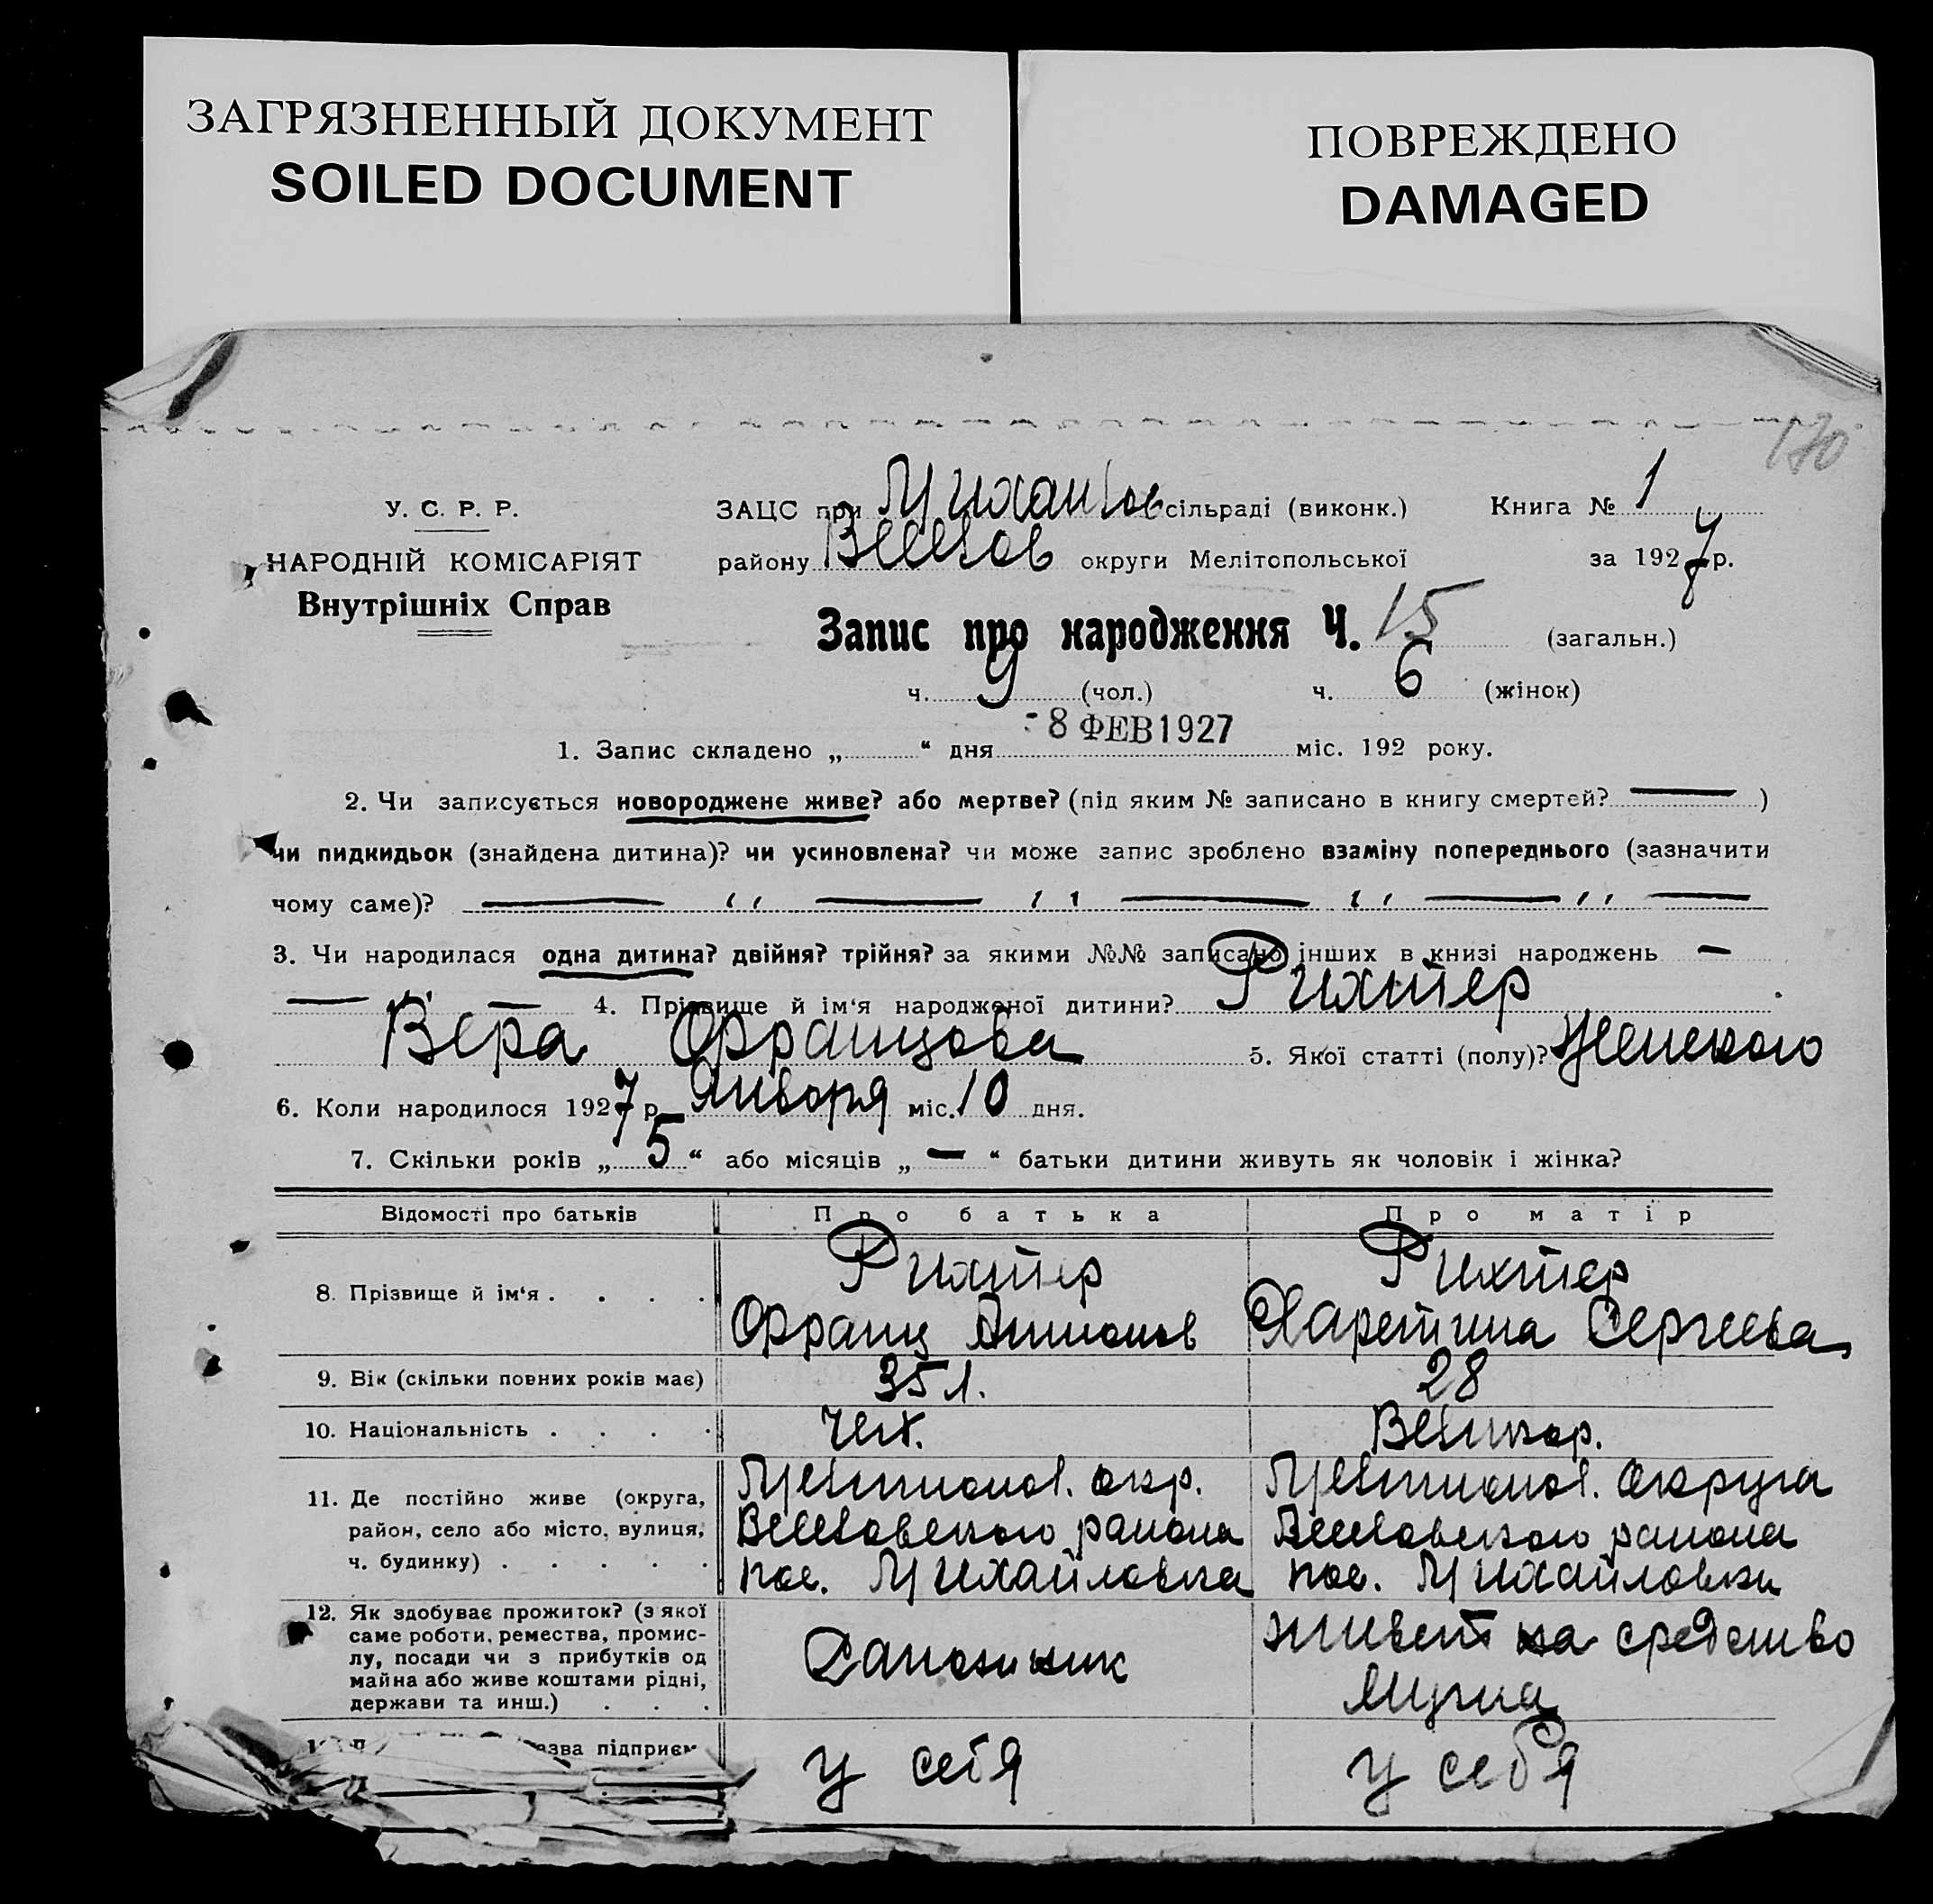 ЗАГРЯЗНЕННЫЙ ДОКУМЕНТ
SOILED DOCUMENT
ПОВРЕЖДЕНО
DAMAGED
170
У. С. Р. Р.
НАРОДНІЙ КОМІСАРІЯТ
Внутрішніх Справ
ЗАЦС при Михайлов сільраді (виконк.) Книга № 1
району Веселов округи Мелітопольської за 1927 р.
Запис про народження Ч. 15 (загальн.)
ч. 9 (чол.) ч. 6 (жінок)
1. Запис складено „ “ дня -8 ФЕВ 1927 міс. 192 року.
2. Чи записується новороджене живе? або мертве? (під яким № записано в книгу смертей? — )
чи пидкидьок (знайдена дитина)? чи усиновлена? чи може запис зроблено взаміну попереднього (зазначити
чому саме)? — „ — „ — „ — „ —
3. Чи народилася одна дитина? двійня? трійня? за якими №№ записано інших в книзі народжень —
— „ — 4. Прізвище й ім‘я народженої дитини? Рихтер
Вера Францова 5. Якої статті (полу)? Женского
6. Коли народилося 1927 р. Января міс. 10 дня.
7. Скільки років „ 5 “ або місяців „ — “ батьки дитини живуть як чоловік і жінка?
Відомості про батьків Про батька Про матір
8. Прізвище й ім‘я . . . . Рихтер Рихтер
Франц Антонов Харетина Сергеева
9. Вік (скільки повних років має) 35 л. 28
10. Національність . . . . Чех. Великор.
11. Де постійно живе (округа, Мелитопол. окр. Мелитопол. округа
район, село або місто, вулиця, Веселовского района Веселовского района
ч. будинку) . . . . . пос. Михайловка пос. Михайловки
12. Як здобуває прожиток? (з якої
саме роботи, ремества, промис-
лу, посади чи з прибутків од
майна або живе коштами рідні,
держави та инш.) . . .
Сапожник
живет на средство
мужа
азва підприєм
у себя у себя